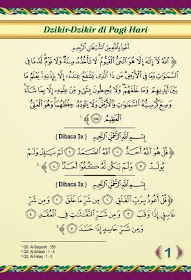 Dzikir-Dzikir di Pagi Hari
أَعُوذُ بِاللَّهِ مِنَ الشَّيْطَانِ الرَّجِيمِ
اللَّهُ لَا إِلَهَ إِلَّا هُوَ الْحَيُّ الْقَيُّومُ لَا تَأْخُذُهُ سِنَةٌ وَلَا نَوْمٌ لَهُ مَا فِي
السَّمَاوَاتِ وَمَا فِي الْأَرْضِ مَنْ ذَا الَّذِي يَشْفَعُ عِنْدَهُ إِلَّا بِإِذْنِهِ يَعْلَمُ مَا
بَيْنَ أَيْدِيهِمْ وَمَا خَلْفَهُمْ وَلَا يُحِيطُونَ بِشَيْءٍ مِنْ عِلْمِهِ إِلَّا بِمَا شَاءَ
وَسِعَ كُرْسِيُّهُ السَّمَاوَاتِ وَالْأَرْضَ وَلَا يَئُودُهُ حِفْظُهُمَا وَهُوَ الْعَلِيُّ
الْعَظِيمُ
( Dibaca 3x ) بِسْمِ اللَّهِ الرَّحْمَنِ الرَّحِيمِ
قُلْ هُوَ اللَّهُ أَحَدٌ ۝ اللَّهُ الصَّمَدُ ۝ لَمْ يَلِدْ وَلَمْ
يُولَدْ ۝ وَلَمْ يَكُنْ لَهُ كُفُوًا أَحَدٌ ۝
( Dibaca 3x ) بِسْمِ اللَّهِ الرَّحْمَنِ الرَّحِيمِ
قُلْ أَعُوذُ بِرَبِّ الْفَلَقِ ۝ مِنْ شَرِّ مَا خَلَقَ ۝ وَمِنْ شَرِّ
غَاسِقٍ إِذَا وَقَبَ ۝ وَمِنْ شَرِّ النَّفَّاثَاتِ فِي الْعُقَدِ ۝
وَمِنْ شَرِّ حَاسِدٍ إِذَا حَسَدَ ۝
¹ QS. Al-Baqarah : 255
² QS. Al-Ikhlash : 1 - 4
³ QS. Al-Falaq : 1 - 5
1